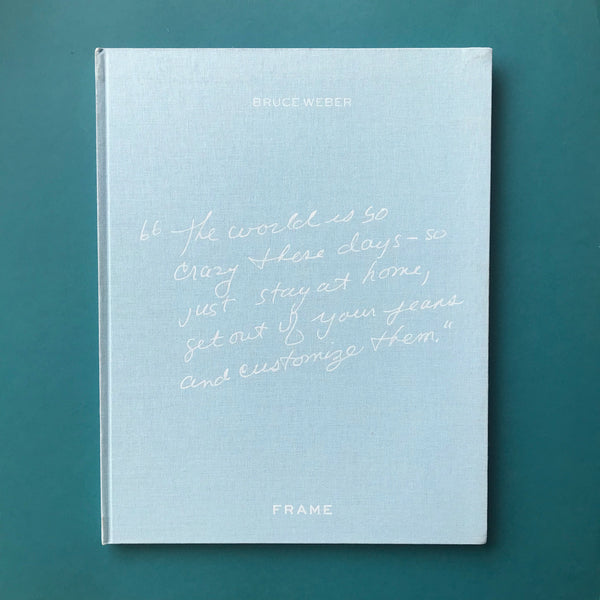 BRUCE WEBER
"the world is so
crazy these days - so
just stay at home,
get out of your jeans
and customize them."
FRAME